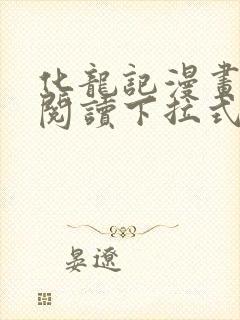 化龍記漫畫
閱讀下拉式
晏遼